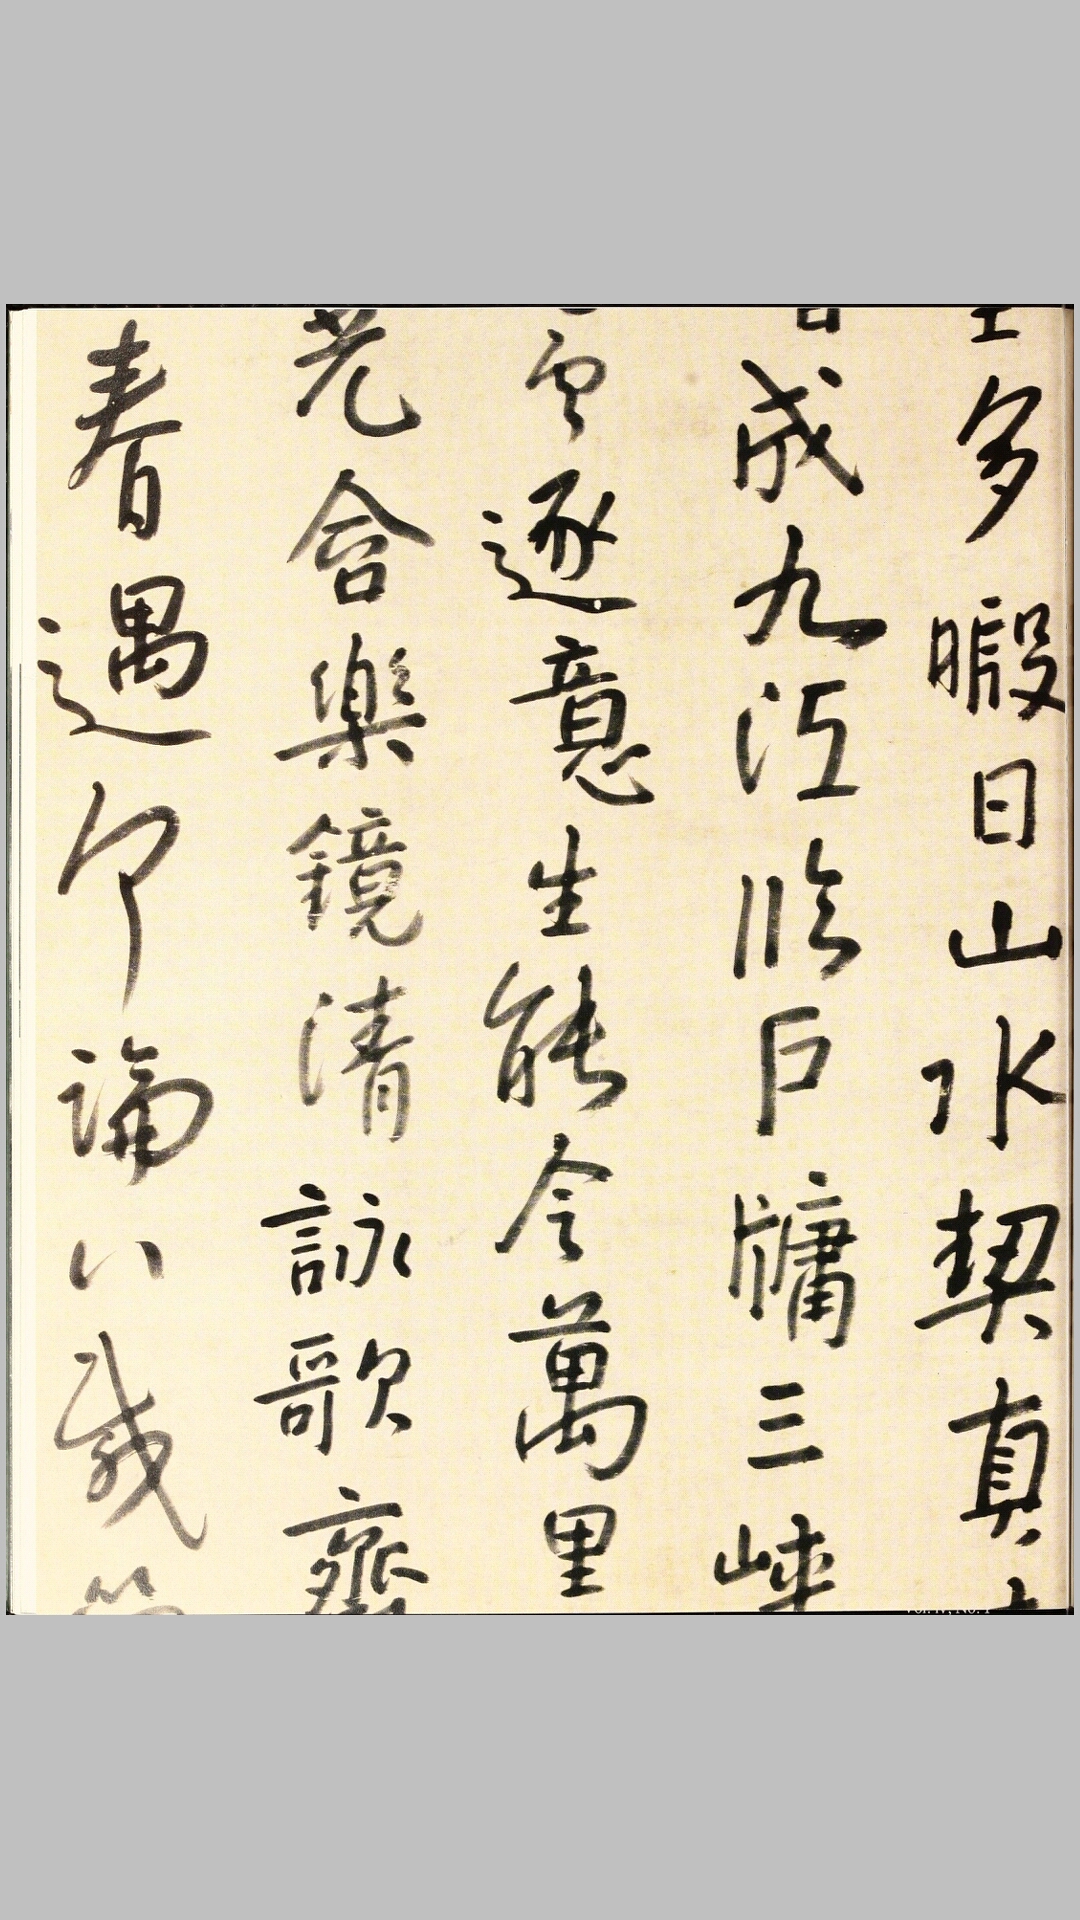 多暇日山水契真
成九江臨戶牖三峽
雲逐意生能令萬里
老會樂鏡清詠歌齊
春遇卬論八